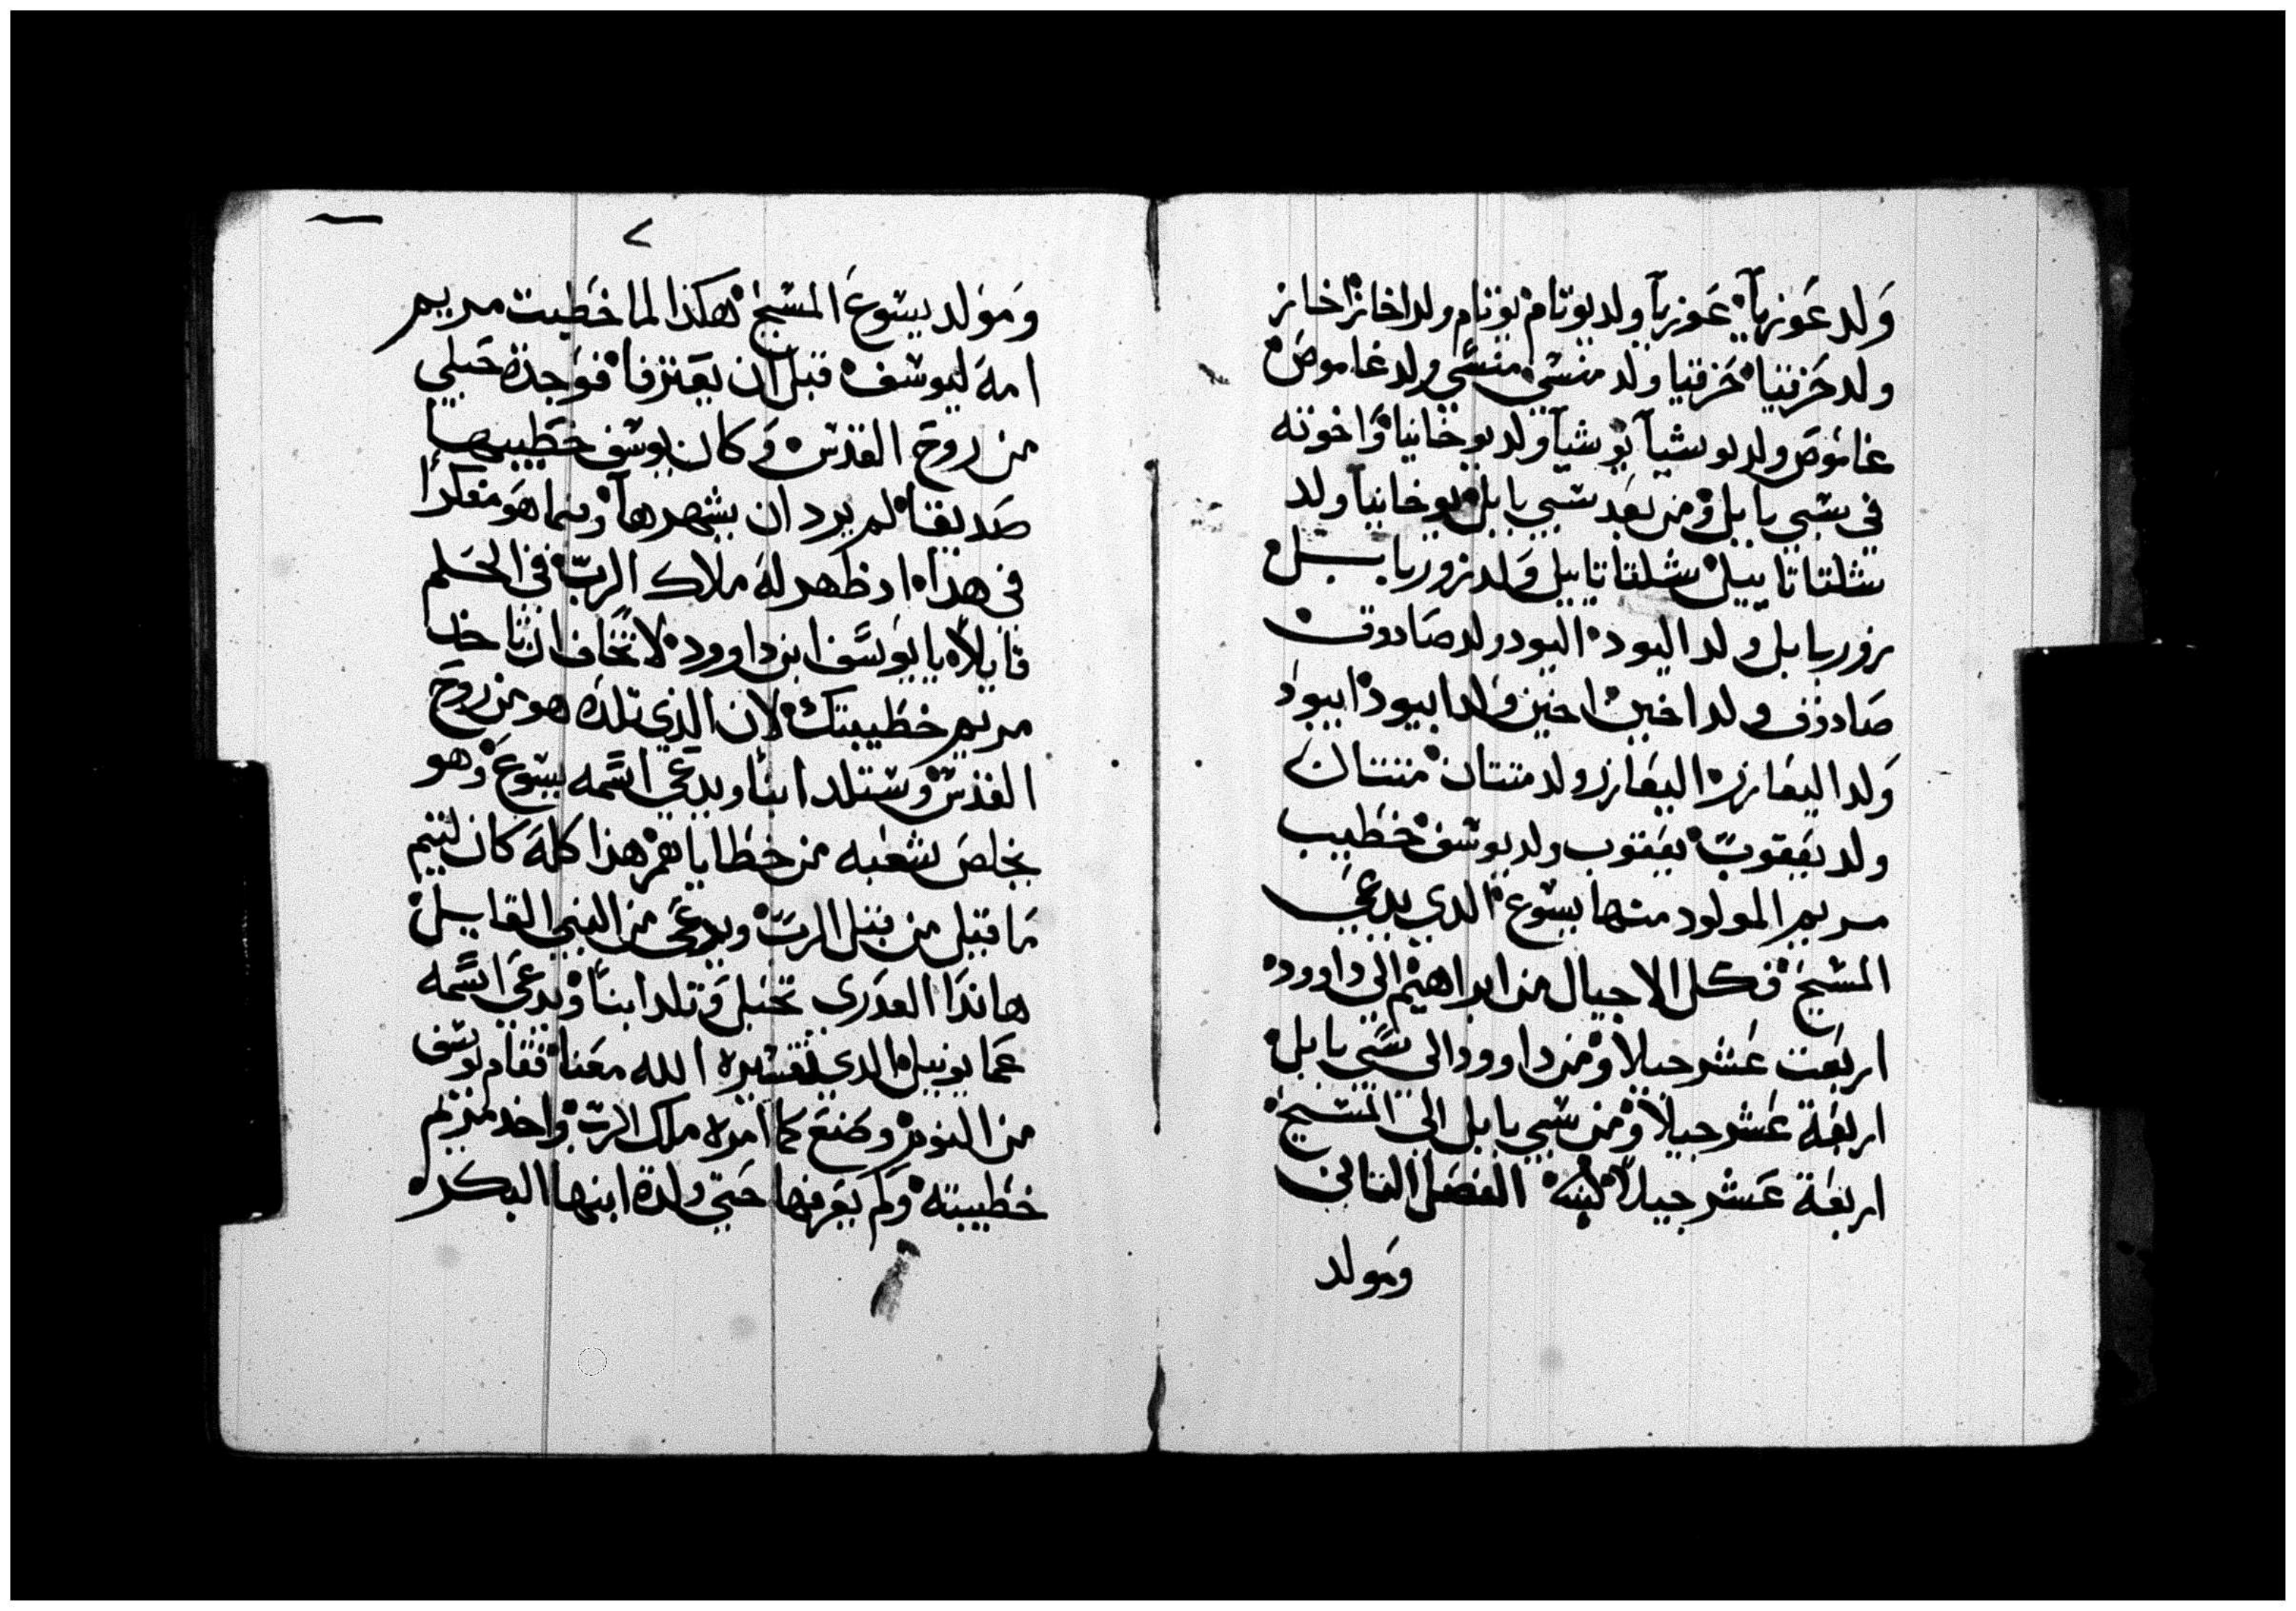 ولد عوزيآ عوزيآ ولد يوتام يوتام ولد اخاز اخاز
ولد حزقيا حزقيا ولد منسي منسي ولد غاموص
غاموص ولد يوشيآ يوشيآ ولد يوخانيا واخوته
في سبي بابل ومن بعد سبي بابل يوخانيا ولد
شلتاتاييل شلتاتاييل ولد زوربابـل
زوربابل ولد اليود اليود ولد صادوق
صادوق ولد اخين اخين ولد ابيود ابيود
ولد اليعازر اليعازر ولد متتان متتان
ولد يعقوب يعقوب ولد يوسف خطيب
مريم المولود منها يسوع الدي يدعي
المسيح فكل الاجيال من ابراهيم الي داوود
اربعت عشر جيلا ومن داوود الى سبي بابل
اربعة عشر جيلا ومن سبي بابل الى المسيح
اربعة عشر جيلا الفصل التاني
ومولد
٢
ومولد يسوع المسيح هكذا لما خطبت مريم
امه ليوسف قبل ان يعترفا فوجدة حبلي
من روح القدس وكان يوسف خطيبها
صديقا لم يرد ان يشهرها وفيما هو متفكرا
في هدا اد ظهر له ملاك الرب في الحلم
قايلا يا يوسف ابن داوود لا تخاف ان تاخد
مريم خطيبتك لان الذي تلده هو من روح
القدس وستلد ابنا ويدعي اسمه يسوع وهو
يخلص شعبه من خطاياهم هذا كله كان ليتم
ما قيل من قبل الرب ويدعى من النبي القايل
هاندا العدرى تحبل وتلد ابنا ويدعي اسمه
عمانوييل الدي تفسيره الله معنا فقام يوسف
من النوم وصنع كما امره ملاك الرب واخد مريم
خطيبته ولم يعرفها حتي ولدة ابنها البكر